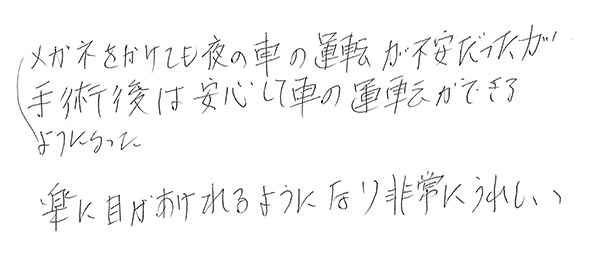 メガネをかけても夜の車の運転が不安だったが
手術後は安心して車の運転ができる
ようになった
楽に目があけれるようになり非常にうれしい、